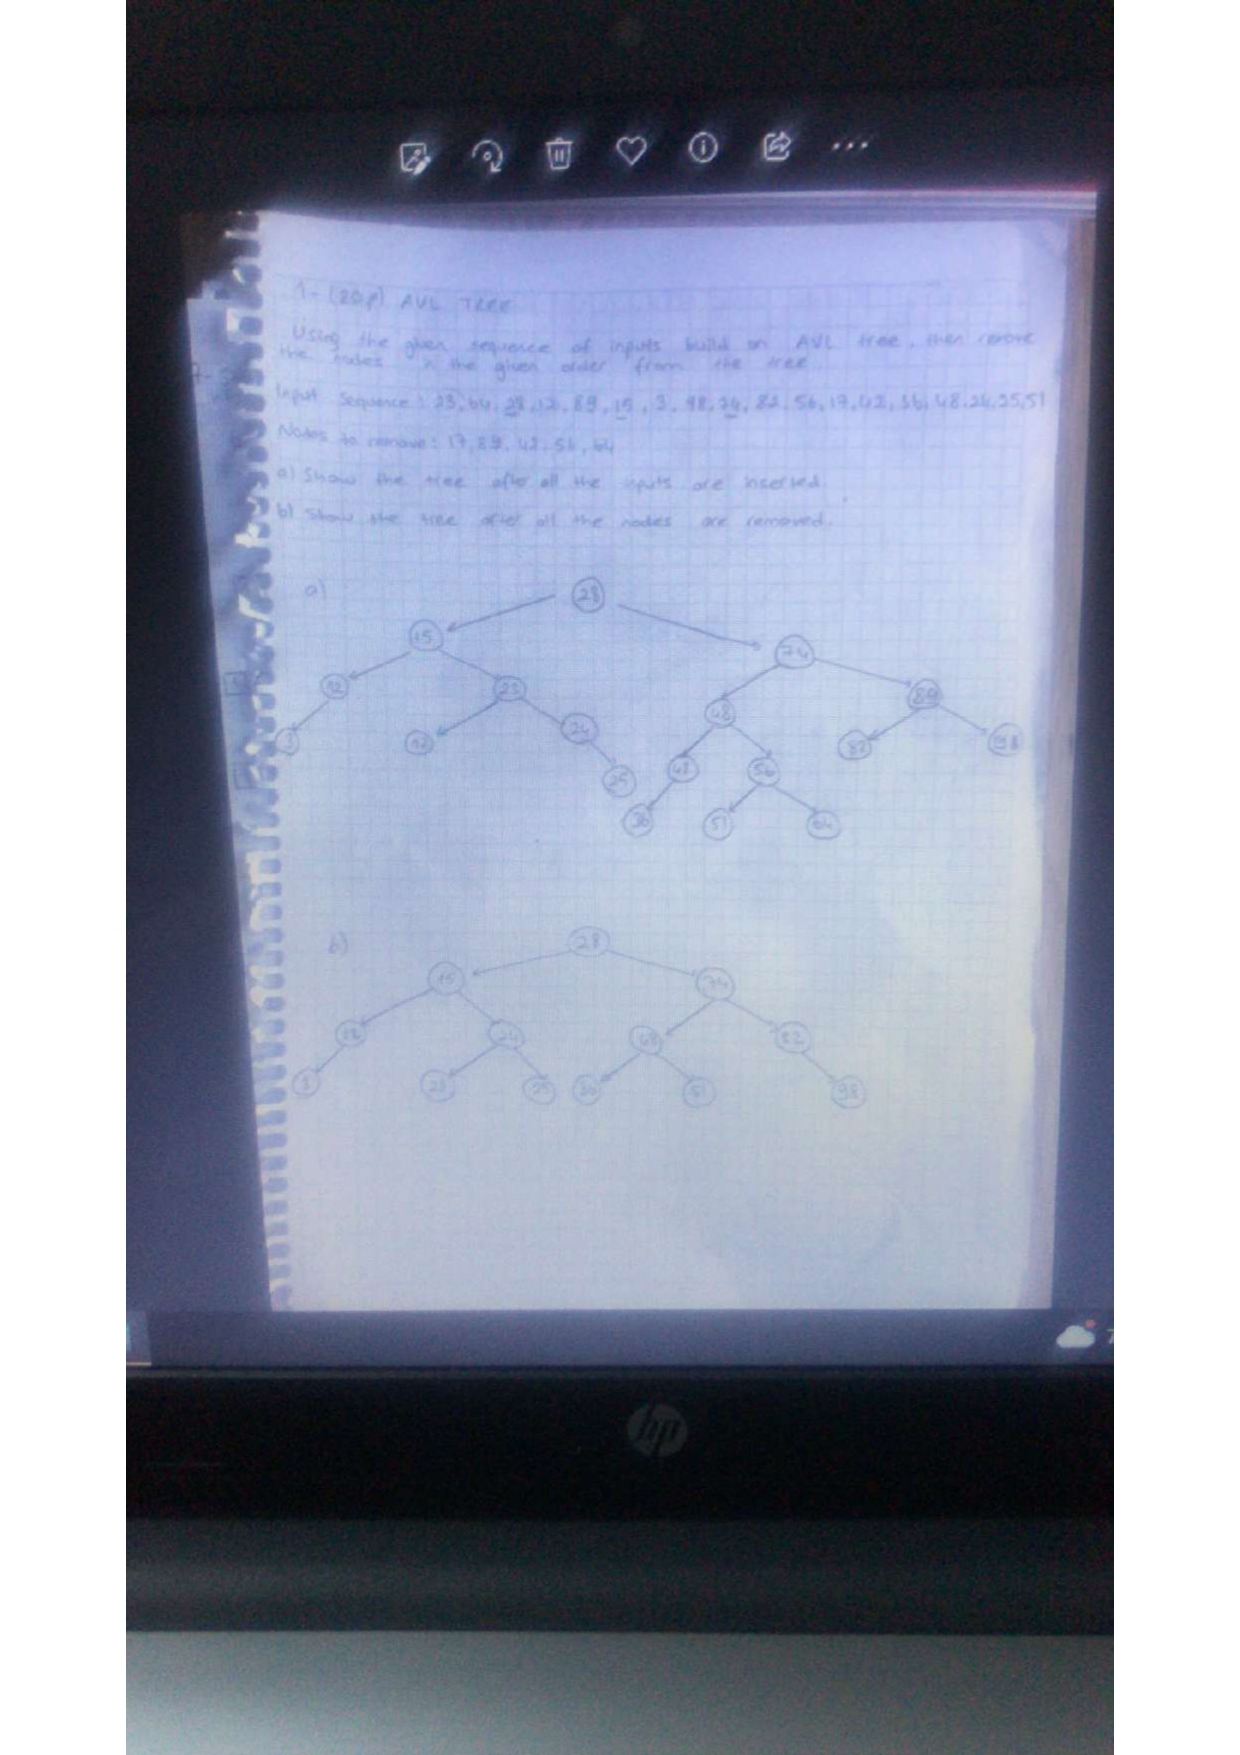 1- (20p) AVL TREE
Using the given sequence of inputs build an AVL tree, then remove
the nodes in the given order from the tree.
Input Sequence: 23, 64, 28, 12, 89, 15, 3, 98, 74, 82, 56, 17, 42, 36, 48, 24, 25, 51
Nodes to remove: 17, 89, 42, 56, 64
a) Show the tree after all the inputs are inserted.
b) Show the tree after all the nodes are removed.
a)
28
15 74
12 23 48 89
3 17 24 42 56 82 98
25 36 51 64
b)
28
15 74
12 24 48 82
3 23 25 36 51 98
hp